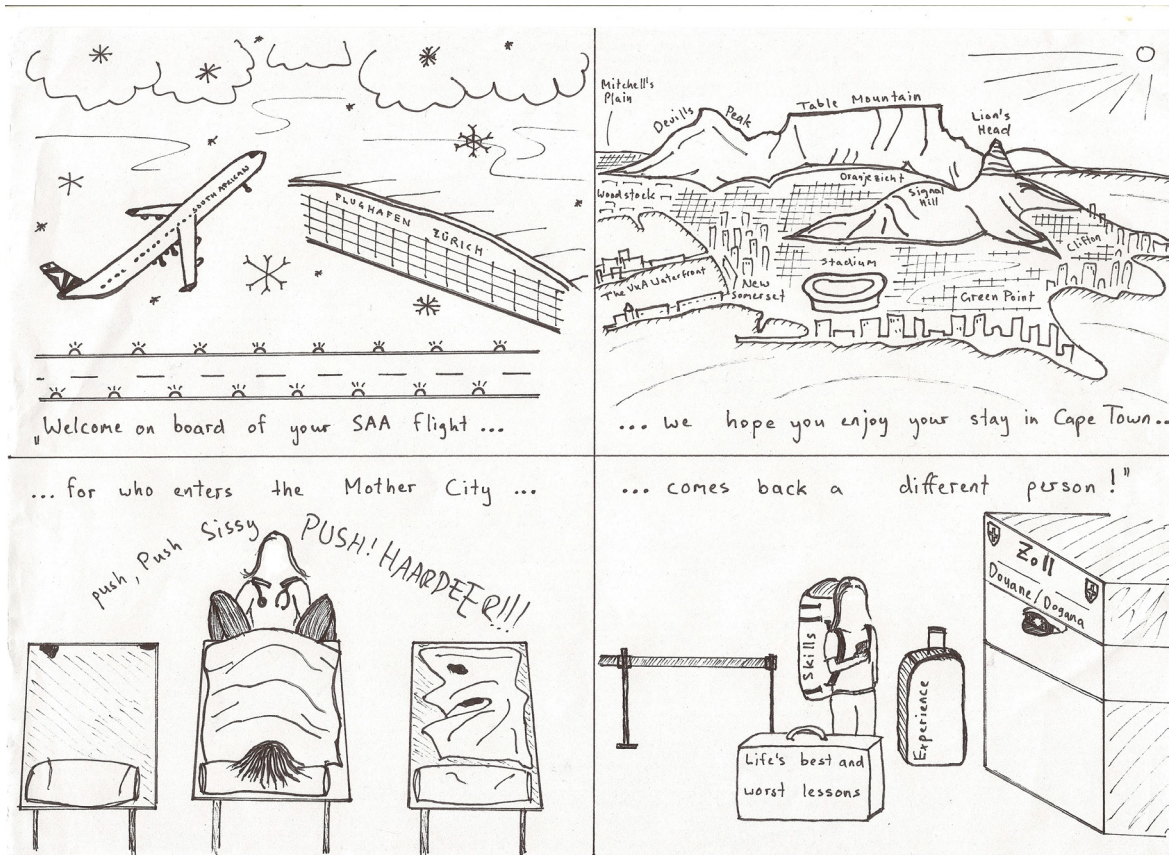 SOUTH AFRICAN
FLUGHAFEN ZÜRICH
„Welcome on board of your SAA flight ...
Mitchell's
Plain
Devil's Peak
Table Mountain
Lion's
Head
Oranjezicht
Woodstock
Signal
Hill
Clifton
Stadium
The V&A Waterfront
New
Somerset
Green Point
... we hope you enjoy your stay in Cape Town ...
... for who enters the Mother City ...
push, Push Sissy PUSH! HAARDEER!!!
... comes back a different person!"
Zoll
Douane/Dogana
Skills
Experience
Life's best and
worst lessons